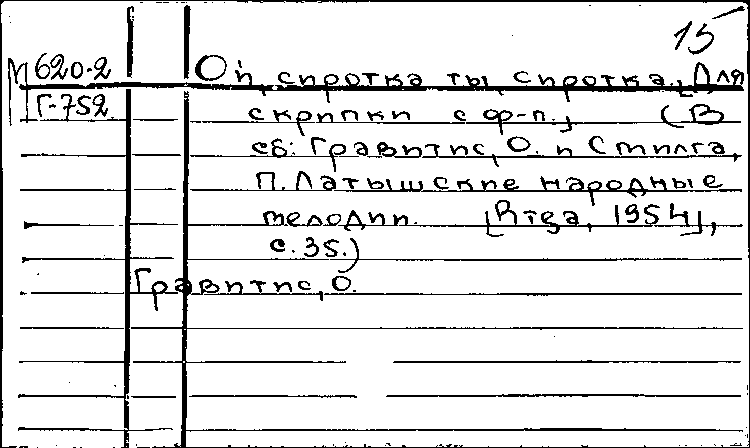 15
М 620-2
Г-752
Ой, сиротка ты, сиротка. [Для
скрипки с ф-п.] (В
сб: Гравитис, О. и Стилга,
П. Латышские народные
мелодии. [Rīga, 1954],
с. 35.)
Гравитис, О.